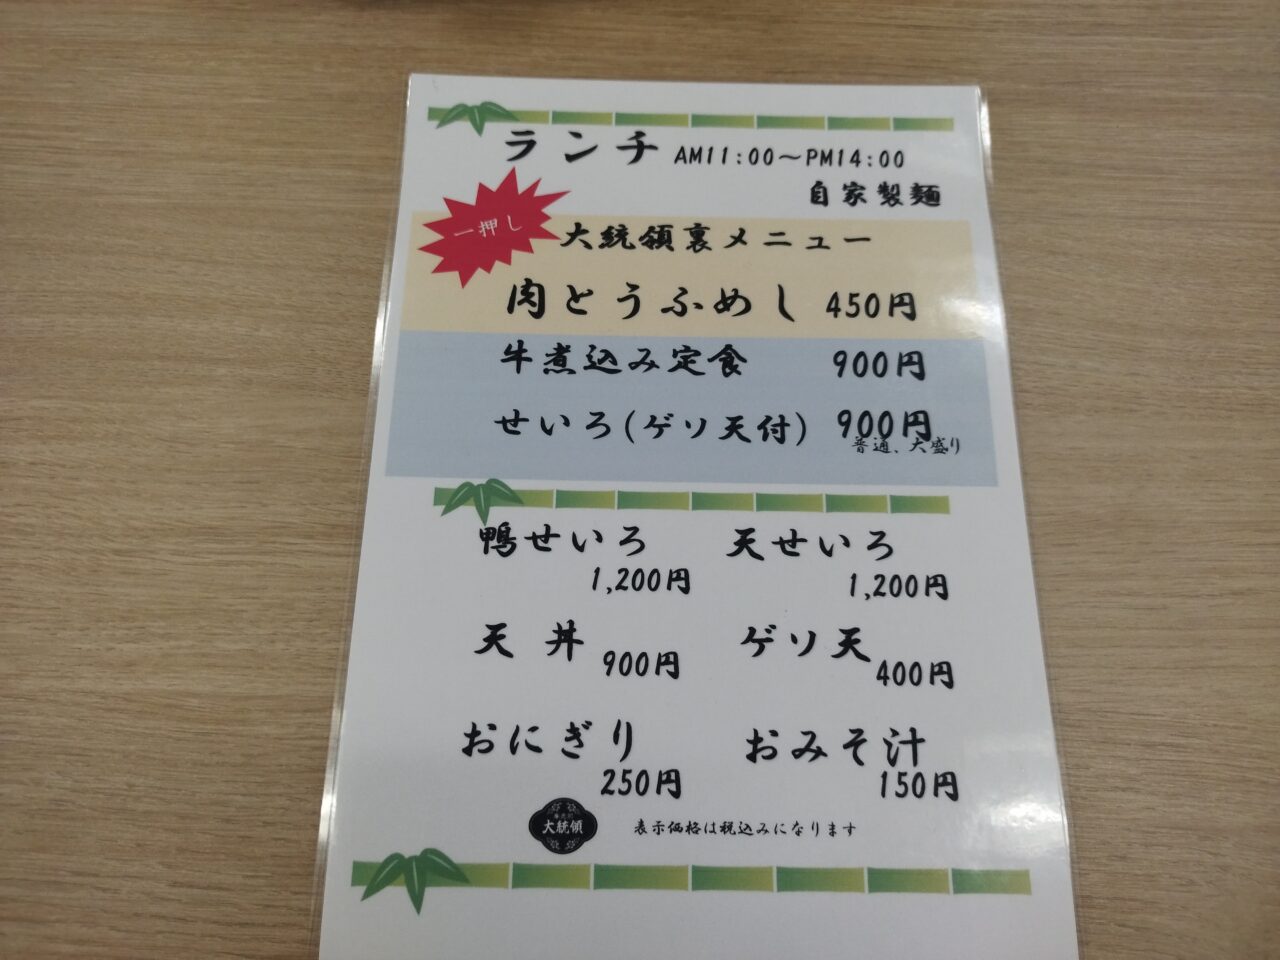 ランチ AM11:00～PM14:00
自家製麺
一押し
大統領裏メニュー
肉とうふめし 450円
牛煮込み定食 900円
せいろ(ゲソ天付) 900円
普通、大盛り
鴨せいろ 天せいろ
1,200円 1,200円
天丼 900円 ゲソ天 400円
おにぎり 250円 おみそ汁 150円
大統領
表示価格は税込みになります